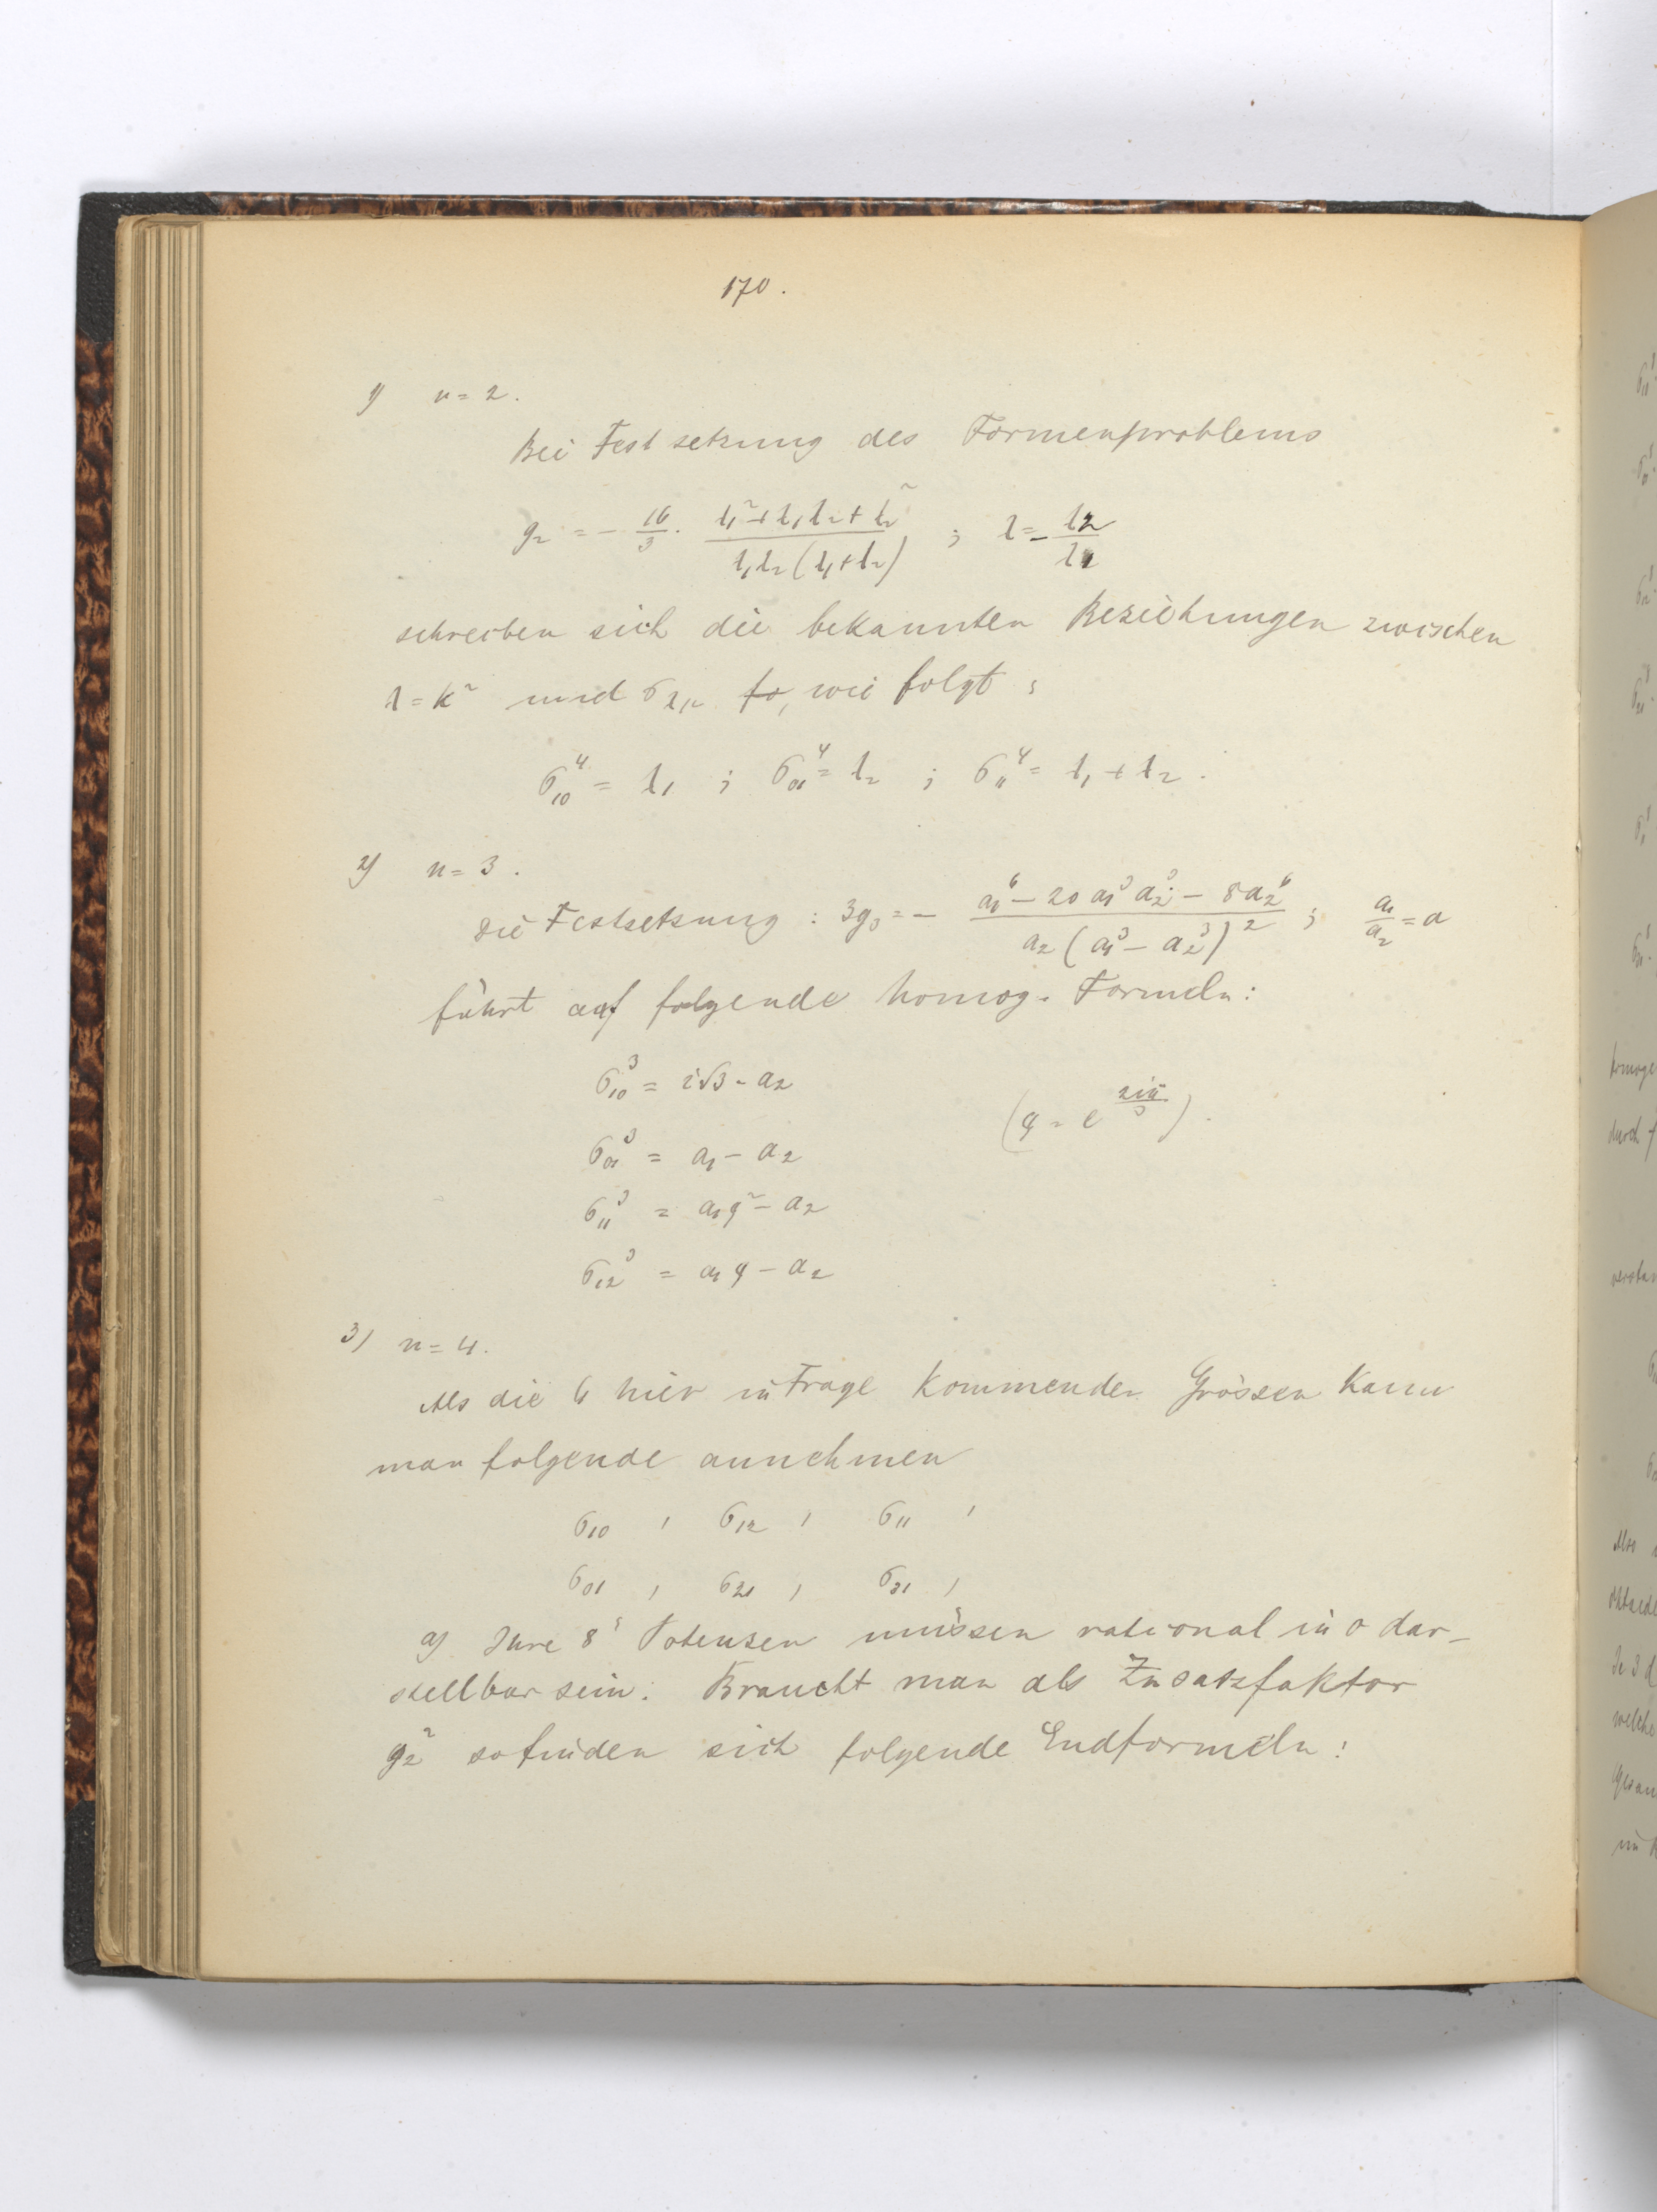 170.
1) n = 2.
Bei Festsetzung des Formenproblems
g₂ = - 16/3 · (λ₁² + λ₁λ₂ + λ₂²)/(λ₁λ₂(λ₁+λ₂)) ; λ = - λ₂/λ₁
schreiben sich die bekannten Beziehungen zwischen
λ = k² und σλμ so, wie folgt :
σ₁₀⁴ = λ₁ ; σ₀₁⁴ = λ₂ ; σ₁₁⁴ = λ₁ + λ₂ .
2) n = 3 .
Die Festsetzung : 3g₃ = - (a₁⁶ - 20 a₁³ a₂³ - 8a₂⁶)/(a₂(a₁³ - a₂³)²) ; a₁/a₂ = a
führt auf folgende homog. Formeln :
σ₁₀³ = i√3 · a₂
(ϱ = e^(2iπ/3)) .
σ₀₁³ = a₁ - a₂
σ₁₁³ = a₁ϱ² - a₂
σ₁₂³ = a₁ϱ - a₂
3) n = 4.
Als die 6 hier in Frage kommenden Grössen kann
man folgende annehmen
σ₁₀ , σ₁₂ , σ₁₁ ,
σ₀₁ , σ₂₁ , σ₃₁ ,
a) Ihre 8ᵗ Potenzen müssen rational in σ dar-
stellbar sein. Braucht man als Zusatzfaktor
g₂² so finden sich folgende Endformeln :